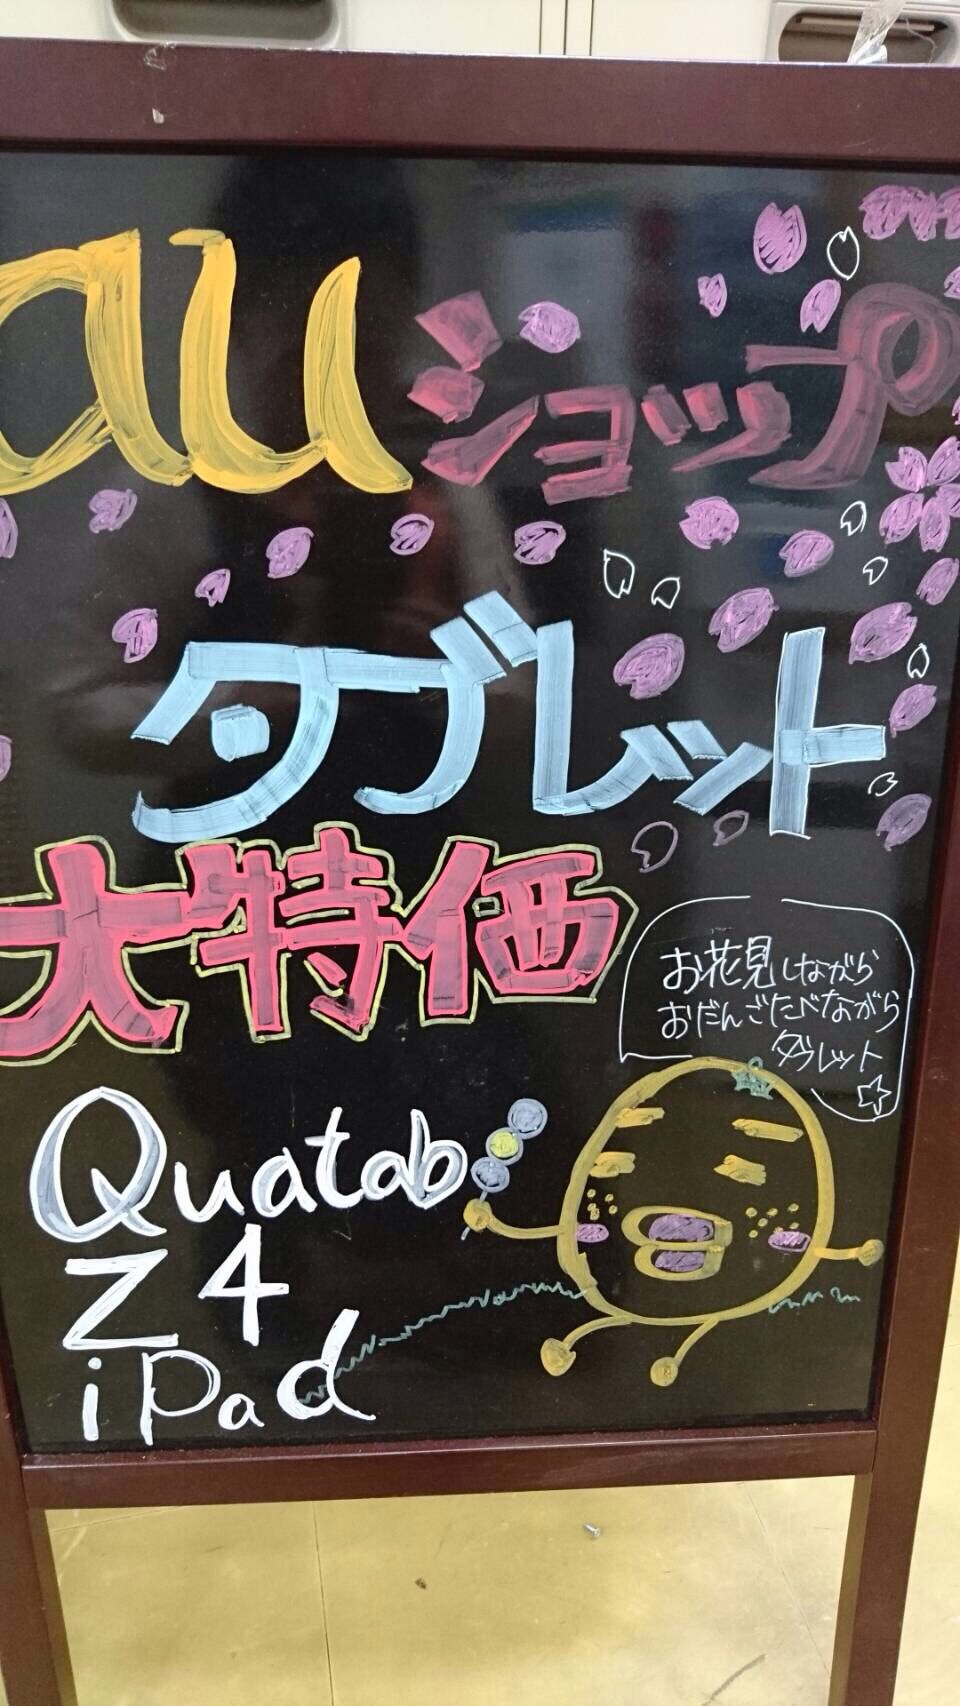 auショップ
タブレット
大特価
お花見しながら
おだんごたべながら
タブレット
Quatab
Z4
iPad